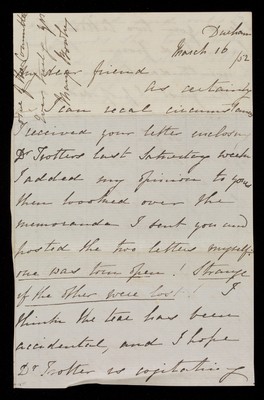 Durham
March 16 /52
My dear friend
As certainly
as I can recal circumstances
I received your letter enclosing
Dr Trotters last Saturday week
I added my opinion to yours
then looked over the
memoranda I sent you and
posted the two letters myself:
one was torn open! Strange
if the other were lost! I
think the tear has been
accidental, and I hope
Dr Trotter is cogitating